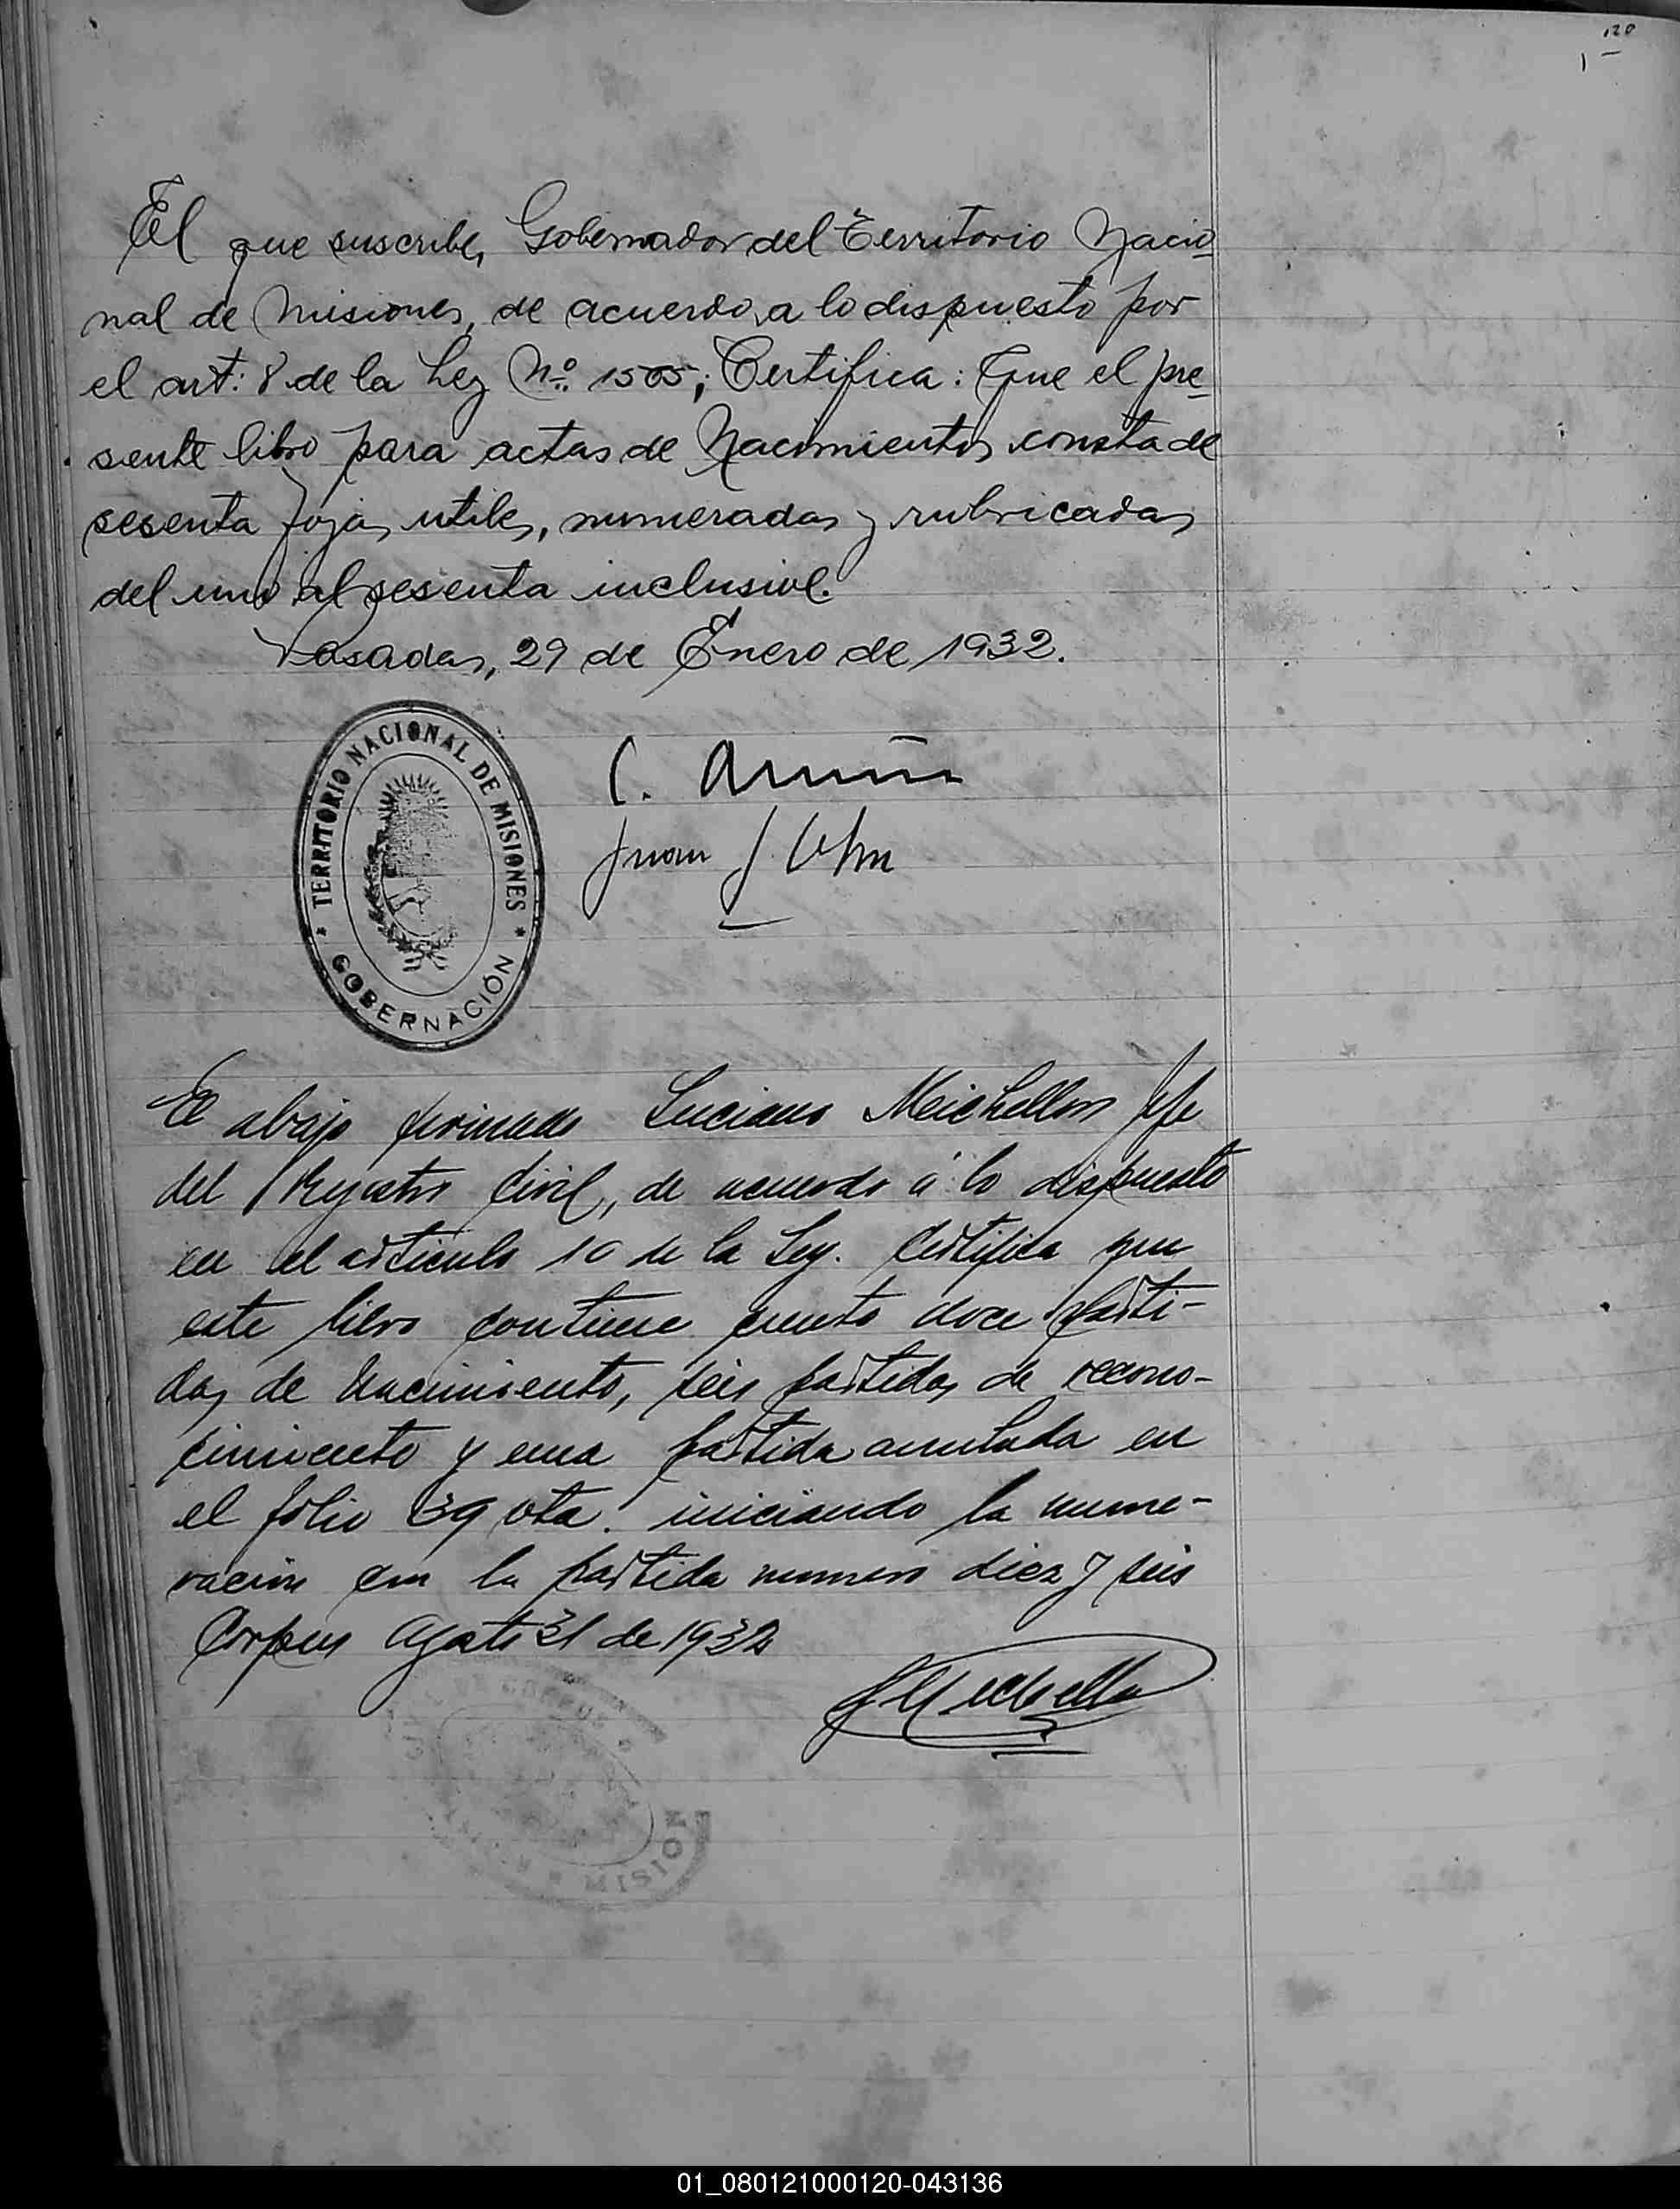 120
1
El que suscribe, Gobernador del Territorio Nacio
nal de Misiones, de acuerdo a lo dispuesto por
el art: 8 de la Ley Nº 1565; Certifica: Que el pre
sente libro para actas de Nacimientos consta de
sesenta fojas utiles, numeradas y rubricadas
del uno al sesenta inclusive.
Posadas, 29 de Enero de 1932.
TERRITORIO NACIONAL DE MISIONES
GOBERNACIÓN
C.
Juan J.
El abajo firmado Luciano Michellon Jefe
del Registro Civil, de acuerdo á lo dispuesto
en el articulo 10 de la Ley. Certifica que
este libro contiene ciento doce parti-
das de Nacimiento, seis partidas de recono-
cimiento y una partida anulada en
el folio 39 vta. iniciando la nume-
ración con la partida numero diez y seis
Corpus Agosto 31 de 1932
CORPUS
MISION
01_080121000120-043136